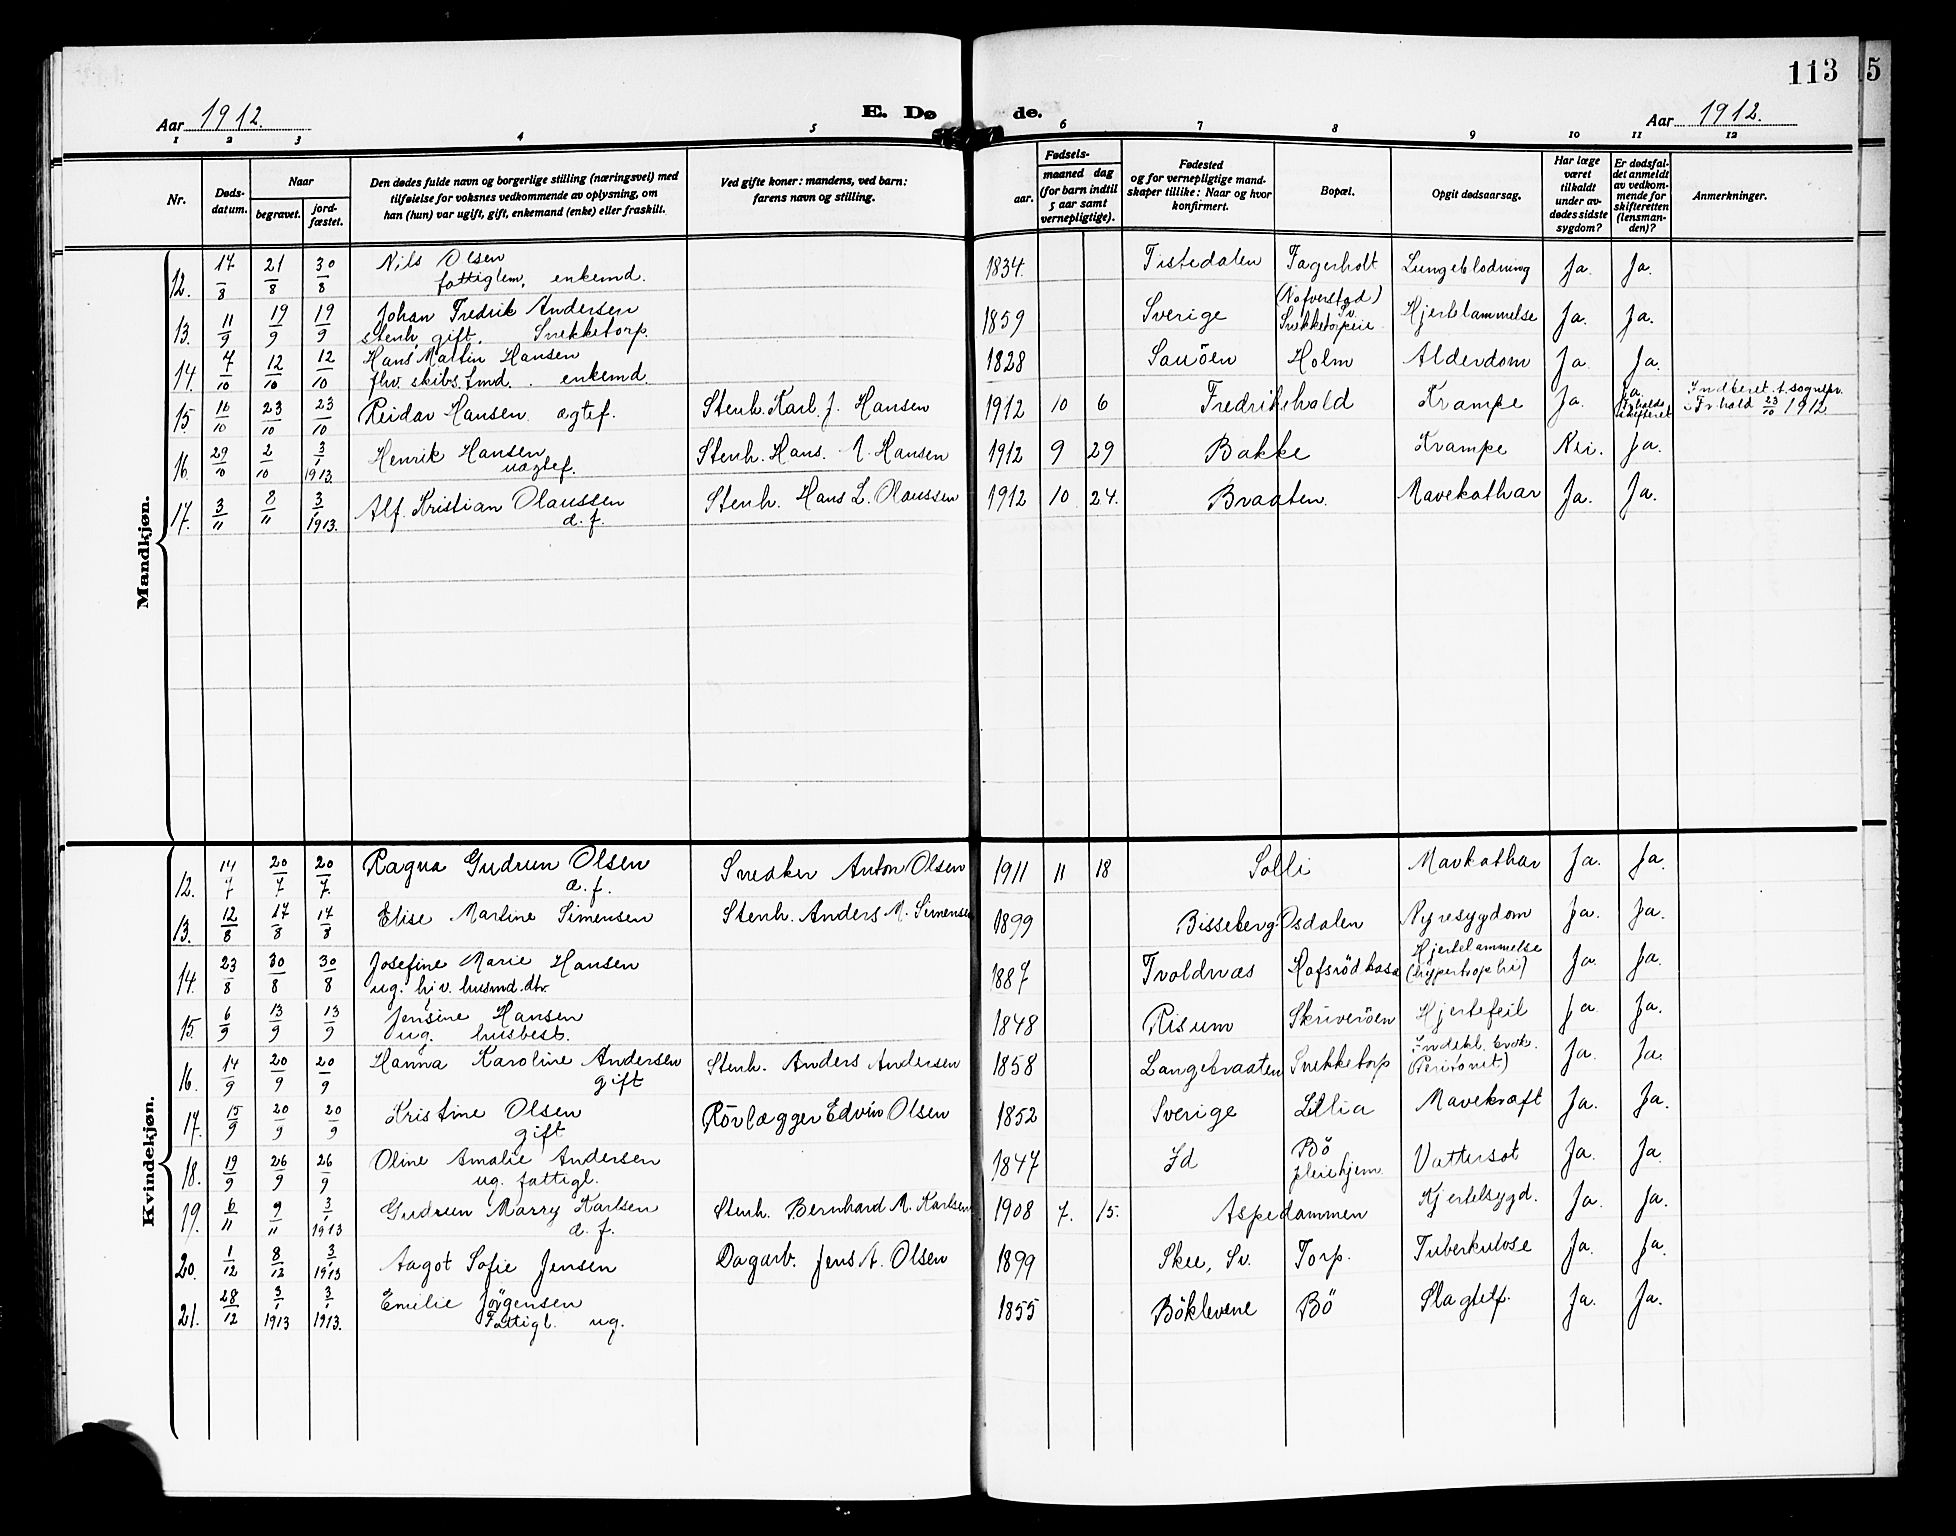 113
5
Aar 1912.
E. Døde.
Aar 1912.
1 2 3 4 5 6 7 8 9 10 11 12
Nr.
Døds-
datum.
Naar
begravet.
jord-
fæstet.
Den dødes fulde navn og borgerlige stilling (næringsvei) med
tilføielse for voksnes vedkommende av oplysning, om
han (hun) var ugift, gift, enkemand (enke) eller fraskilt.
Ved gifte koner: mandens, ved barn:
farens navn og stilling.
Fødsels-
aar.
maaned dag
(for barn indtil
5 aar samt
vernepligtige).
Fødested
og for vernepligtige mand-
skaper tillike: Naar og hvor
konfirmert.
Bopæl.
Opgit dødsaarsag.
Har læge
været
tilkaldt
under av-
dødes sidste
sygdom?
Er dødsfal-
det anmeldt
av vedkom-
mende for
skifteretten
(lensman-
den)?
Anmerkninger.
Mandkjøn.
12. 17/8 21/8 30/8 Nils Olsen 1834. Tistedalen Fagerholt Lungeblødning Ja. Ja.
fattiglem, enkemd.
13. 11/9 19/9 19/9 Johan Fredrik Andersen 1859 Sverige (Nafverstad) Sv. Hjertelammelse Ja. Ja.
stenh. gift. Snekketorp. Snekketorpeie
14. 7/10 12/10 12/10 Hans Martin Hansen 1828 Sauöen Holm Alderdom Ja Ja.
fhv. skibs.tmd. enkemd.
15. 16/10 23/10 23/10 Reidar Hansen ægtef. Stenh. Karl J. Hansen 1912 10 6 Fredrikshald Krampe Ja. Ja. Frhalds skifteret Indberet. t. sognepr. i Frhald 23/10 1912
16. 29/10 2/10 3/1 1913. Henrik Hansen Stenh. Hans. A. Hansen 1912 9 29 Bakke Krampe Nei. Ja.
uægtef.
17. 3/11 8/11 3/1 1913. Alf Kristian Olaussen Stenh. Hans L. Olaussen 1912 10 24. Braaten. Mavekathar Ja. Ja.
d. f.
Kvindekjøn.
12. 14/7 20/7 20/7. Ragna Gudrun Olsen Snedker Anton Olsen 1911 11 18 Solli Mavkathar Ja. Ja.
d. f.
13. 12/8 17/8 17/8 Elise Martine Simensen Stenh. Anders M. Simensen 1899 Bisseberg. Osdalen Nyresygdom Ja. Ja.
14. 23/8 30/8 30/8 Josefine Marie Hansen 1887 Tvoldnæs Hafsrödhasa Hjertelammelse Ja. Ja.
ug. hjv. husmd.dtr. (hypertrophi)
15. 6/9 13/9 13/9 Jensine Hansen 1848 Risum Skriveröen Hjertefeil Ja. Ja.
ug. husbest.
16. 14/9 20/9 20/9 Hanna Karoline Andersen Stenh. Anders Andersen 1858 Langebraaten Snekketorp Indekl. brok. Ja. Ja.
gift (Peritonit.)
17. 15/9 20/9 20/9 Kristine Olsen Rörlægger Edvin Olsen 1852 Sverige Lillia Mavekræft Ja. Ja.
gift
18. 19/9 26/9 26/9 Oline Amalie Andersen 1847 Id Bö Vattersot Ja. Ja.
ug. fattigl. pleiehjem
19. 6/11 9/11 3/1 1913 Gudrun Marry Karlsen Stenh. Bernhard M. Karlsen 1908 7. 15. Aspedammen Kjertelsygd. Ja. Ja.
d. f.
20. 1/12 8/12 3/1 1913 Aagot Sofie Jensen Dagarb. Jens A. Olsen 1899 Skee, Sv. Torp. Tuberkulose Ja. Ja.
21. 28/12 3/1 1913 3/1 1913. Emilie Jörgensen 1855 Böklevene Bö Slagtilf. Ja. Ja.
Fattigl. ug.